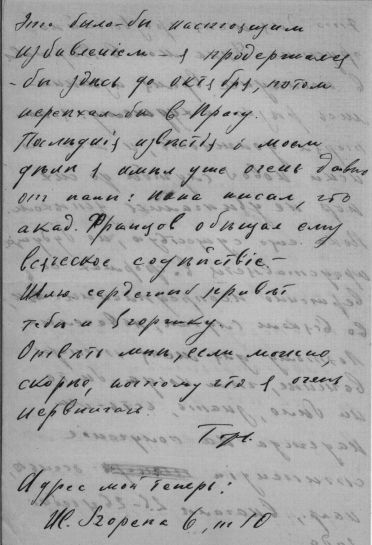 Это было-бы настоящим
избавленіем – я продержался
-бы здесь до октября, потом
переехал бы в Прагу.
Послѣднія извѣстія о моем
дѣлѣ я имѣл уже очень давно
от папы: папа писал, что
акад. Францов обѣщал ему
всяческое содѣйствіе –
Шлю сердечный привѣт
тебѣ и Егорику.
Отвѣть мнѣ, если можно,
скоро, потому что я очень
нервничаю.
Адрес мой теперь:
6, m 10